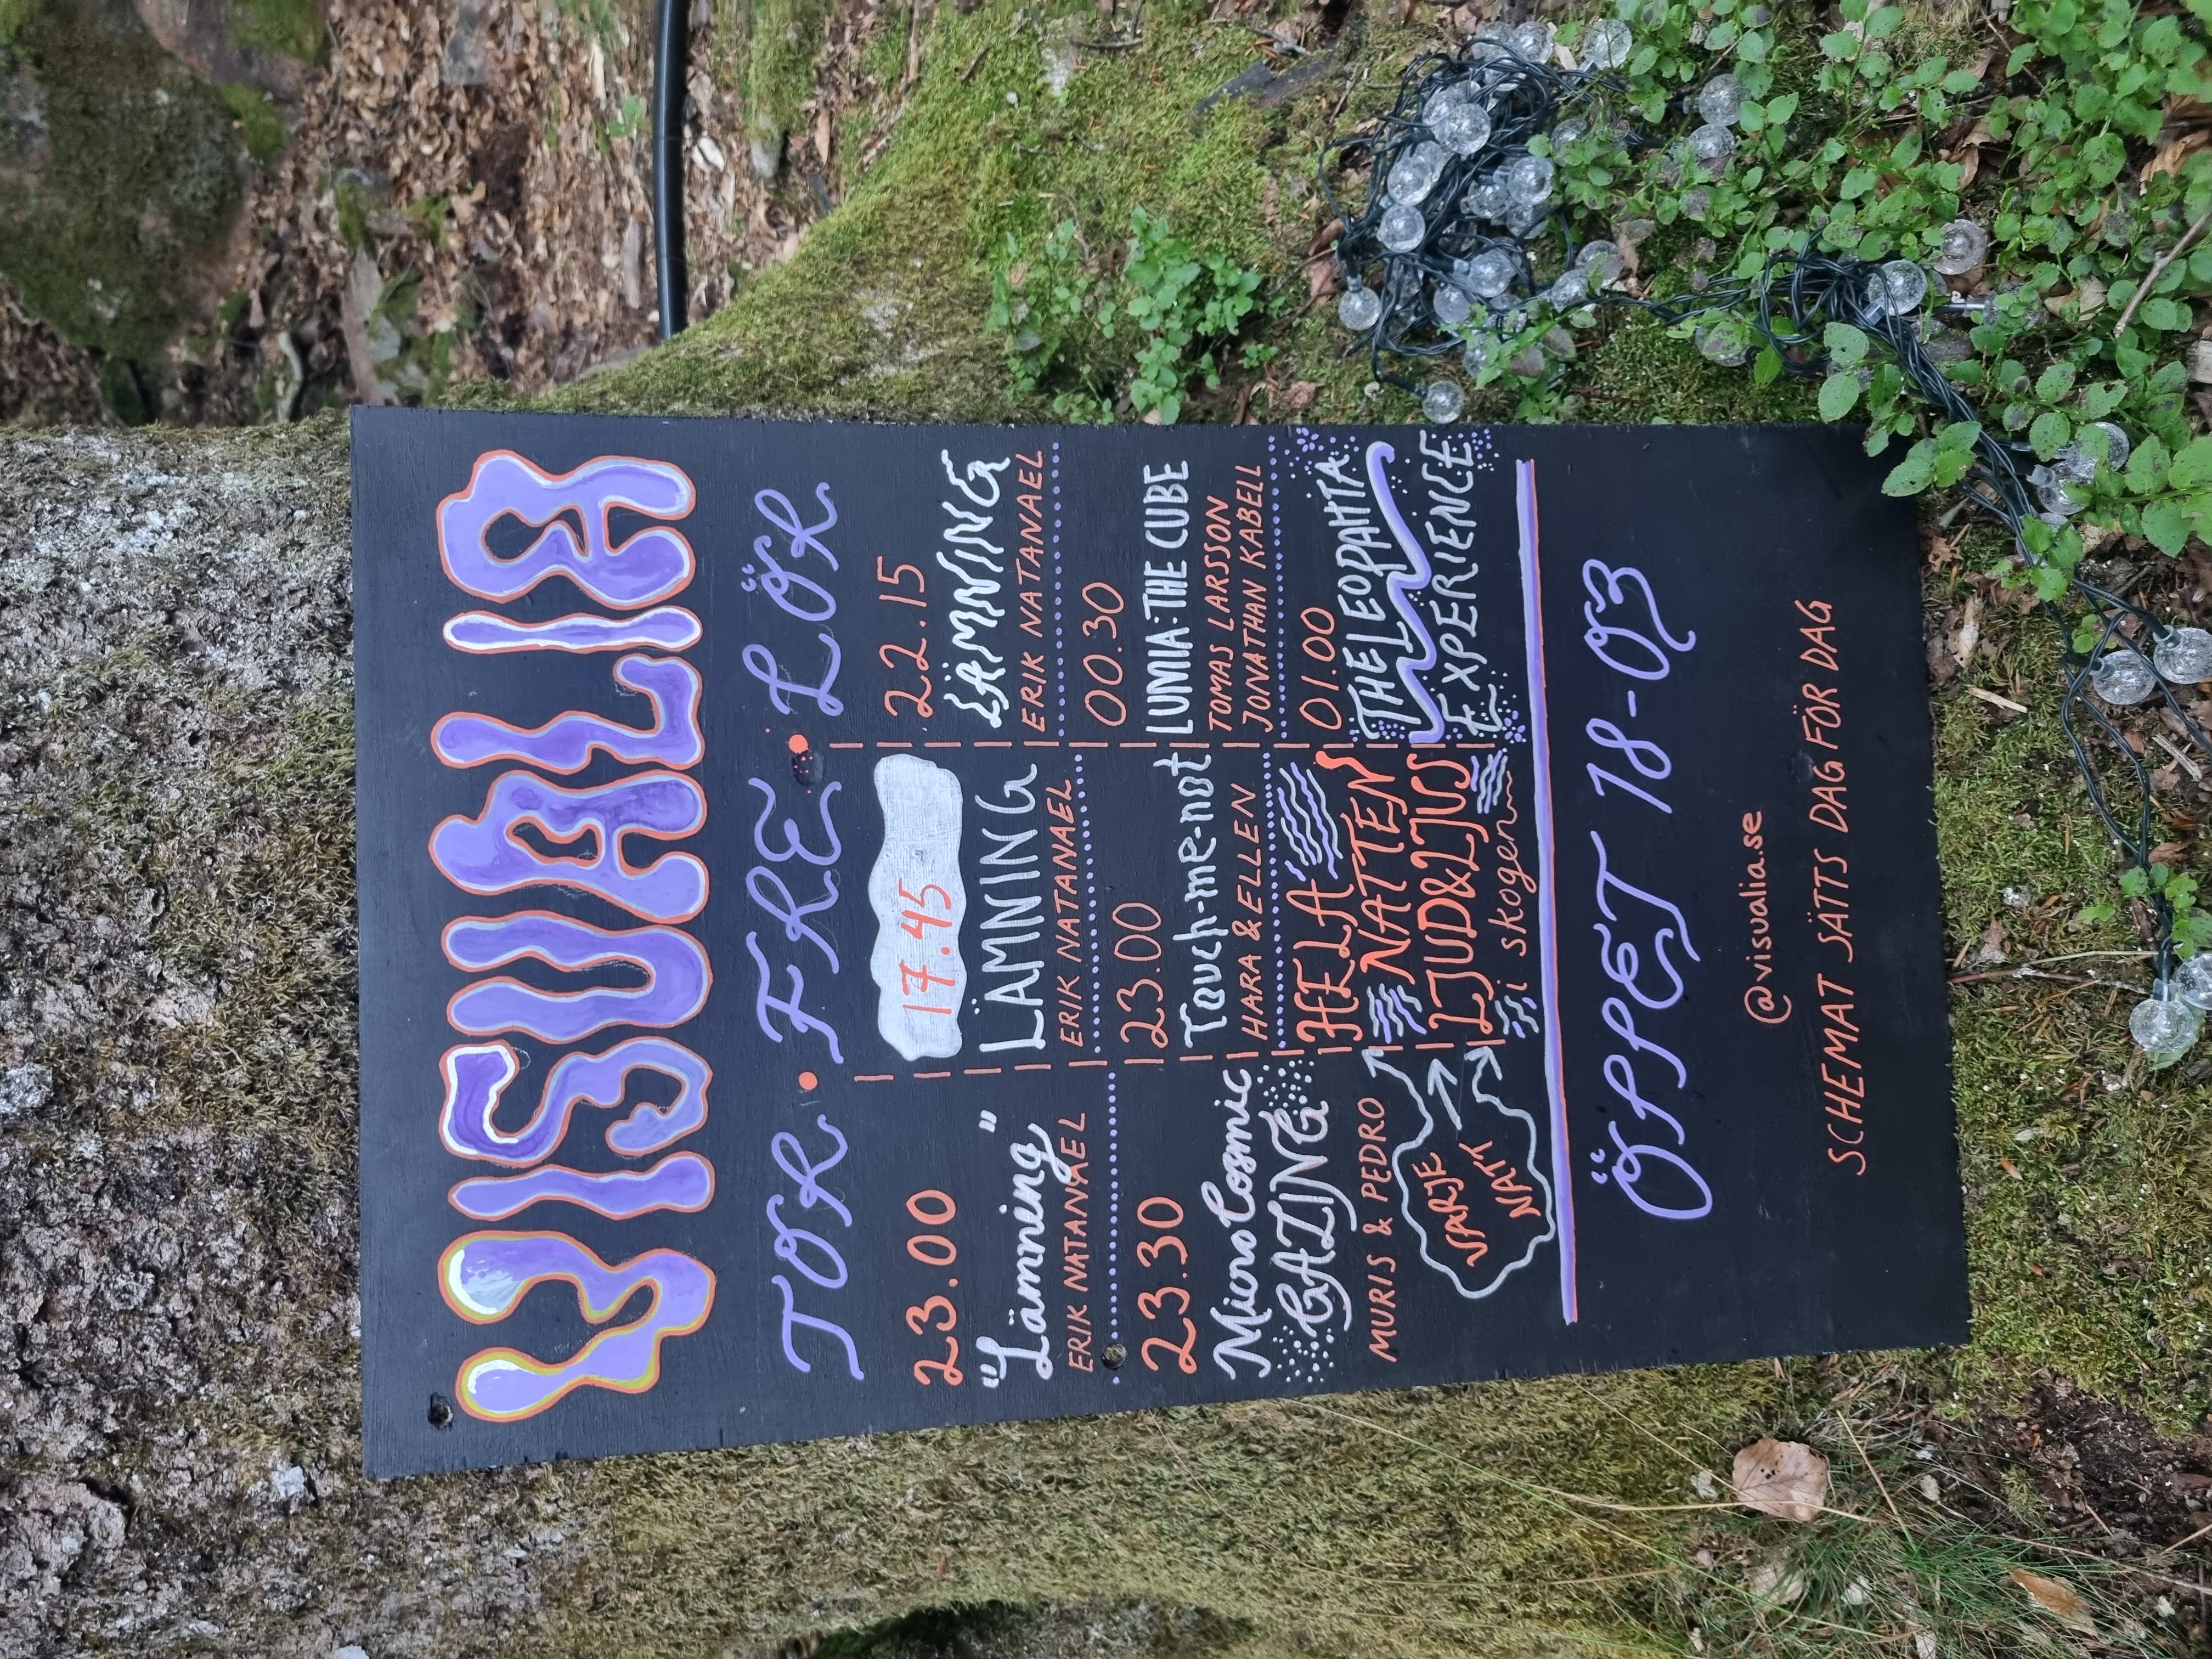 VISUALIA
TOR • FRE • LÖR
23.00
"Lämning"
ERIK NATANAEL
23.30
MicroCosmic
GAZING
MURIS & PEDRO
VARJE
NATT
17.45
LÄMNING
ERIK NATANAEL
23.00
Touch-me-not
HARA & ELLEN
HELA
NATTEN
LJUD&LJUS
i skogen
22.15
LÄMNING
ERIK NATANAEL
00.30
LUMIA:THE CUBE
TOMAS LARSSON
JONATHAN KABELL
01.00
THELEOPAHTA
EXPERIENCE
ÖPPET 18-03
@visualia.se
SCHEMAT SÄTTS DAG FÖR DAG